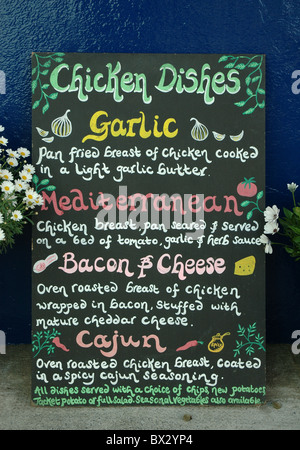 Chicken Dishes
Garlic
Pan fried breast of chicken cooked
in a light garlic butter.
Mediterranean
Chicken breast, pan seared & served
on a bed of tomato, garlic & herb sauce
Bacon & Cheese
Oven roasted breast of chicken
wrapped in bacon, stuffed with
mature cheddar cheese.
Cajun
Oven roasted chicken breast, coated
in a spicy cajun seasoning.
All dishes served with a choice of chips, new potatoes,
Jacket potato or full salad. Seasonal vegetables also available.
alamy
Image ID: BX2YP4
www.alamy.com